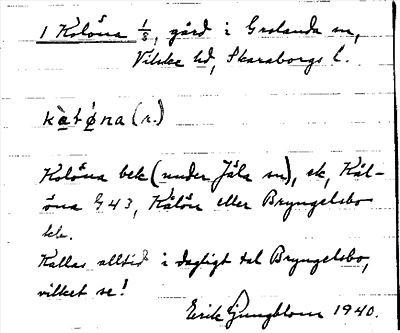 1 Kolöna 1/8, gård i Grolanda sn,
Vilske hd, Skaraborgs l.
kàtǿna (r.)
Kolöna bek (under Jäla sn), sk, Kål-
öna G43, Kålön eller Bryngelsbo
Kallas alltid i dagligt tal Bryngelsbo,
vilket se!
Erik Ljungblom 1940.